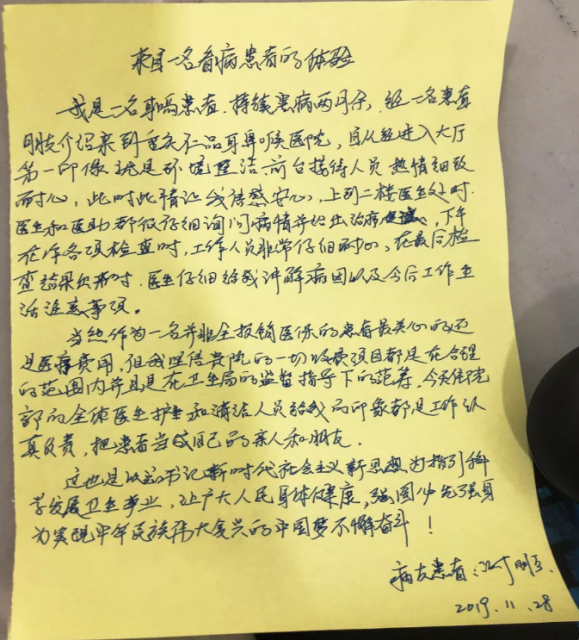 来自一名看病患者的体验
我是一名耳鸣患者.持续患病两月余,经一名患者
朋友介绍来到重庆仁品耳鼻喉医院,自从进入大厅
第一印像就是环境整洁.前台接待人员热情细致
而耐心,此时此情让我倍感安心,上到二楼医生处时.
医生和医助都很仔细询问病情并给出治疗建议,下午
在作各项检查时,工作人员非常仔细耐心,在最后检
查结果出来时.医生仔细给我讲解病因以及今后工作生
活注意事项。
当然作为一名并非全报销医保的患者最关心的还
是医疗费用,但我坚信贵院的一切收费项目都是在合理
的范围内并且是在卫生局的监督指导下的范筹.今天住院
部的全体医生护士和清洁人员给我的印象都是工作认
真负责,把患者当成自己的亲人和朋友.
这也是以习书记新时代社会主义新思想为指引科
学发展卫生事业,让广大人民身体健康,强国必先强身
为实现中华民族伟大复兴的中国梦不懈奋斗!
病友患者:
2019.11.28